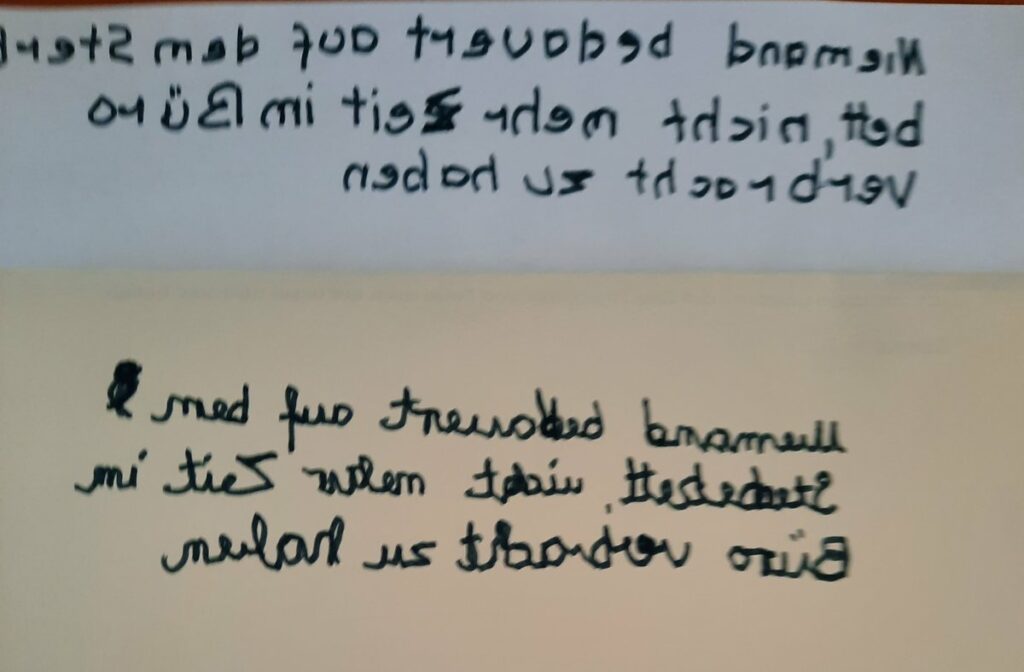 Niemand bedauert auf dem Sterb
bett, nicht mehr Zeit im Büro
verbracht zu haben
Niemand bedauert auf dem
Sterbebett, nicht mehr Zeit im
Büro verbracht zu haben